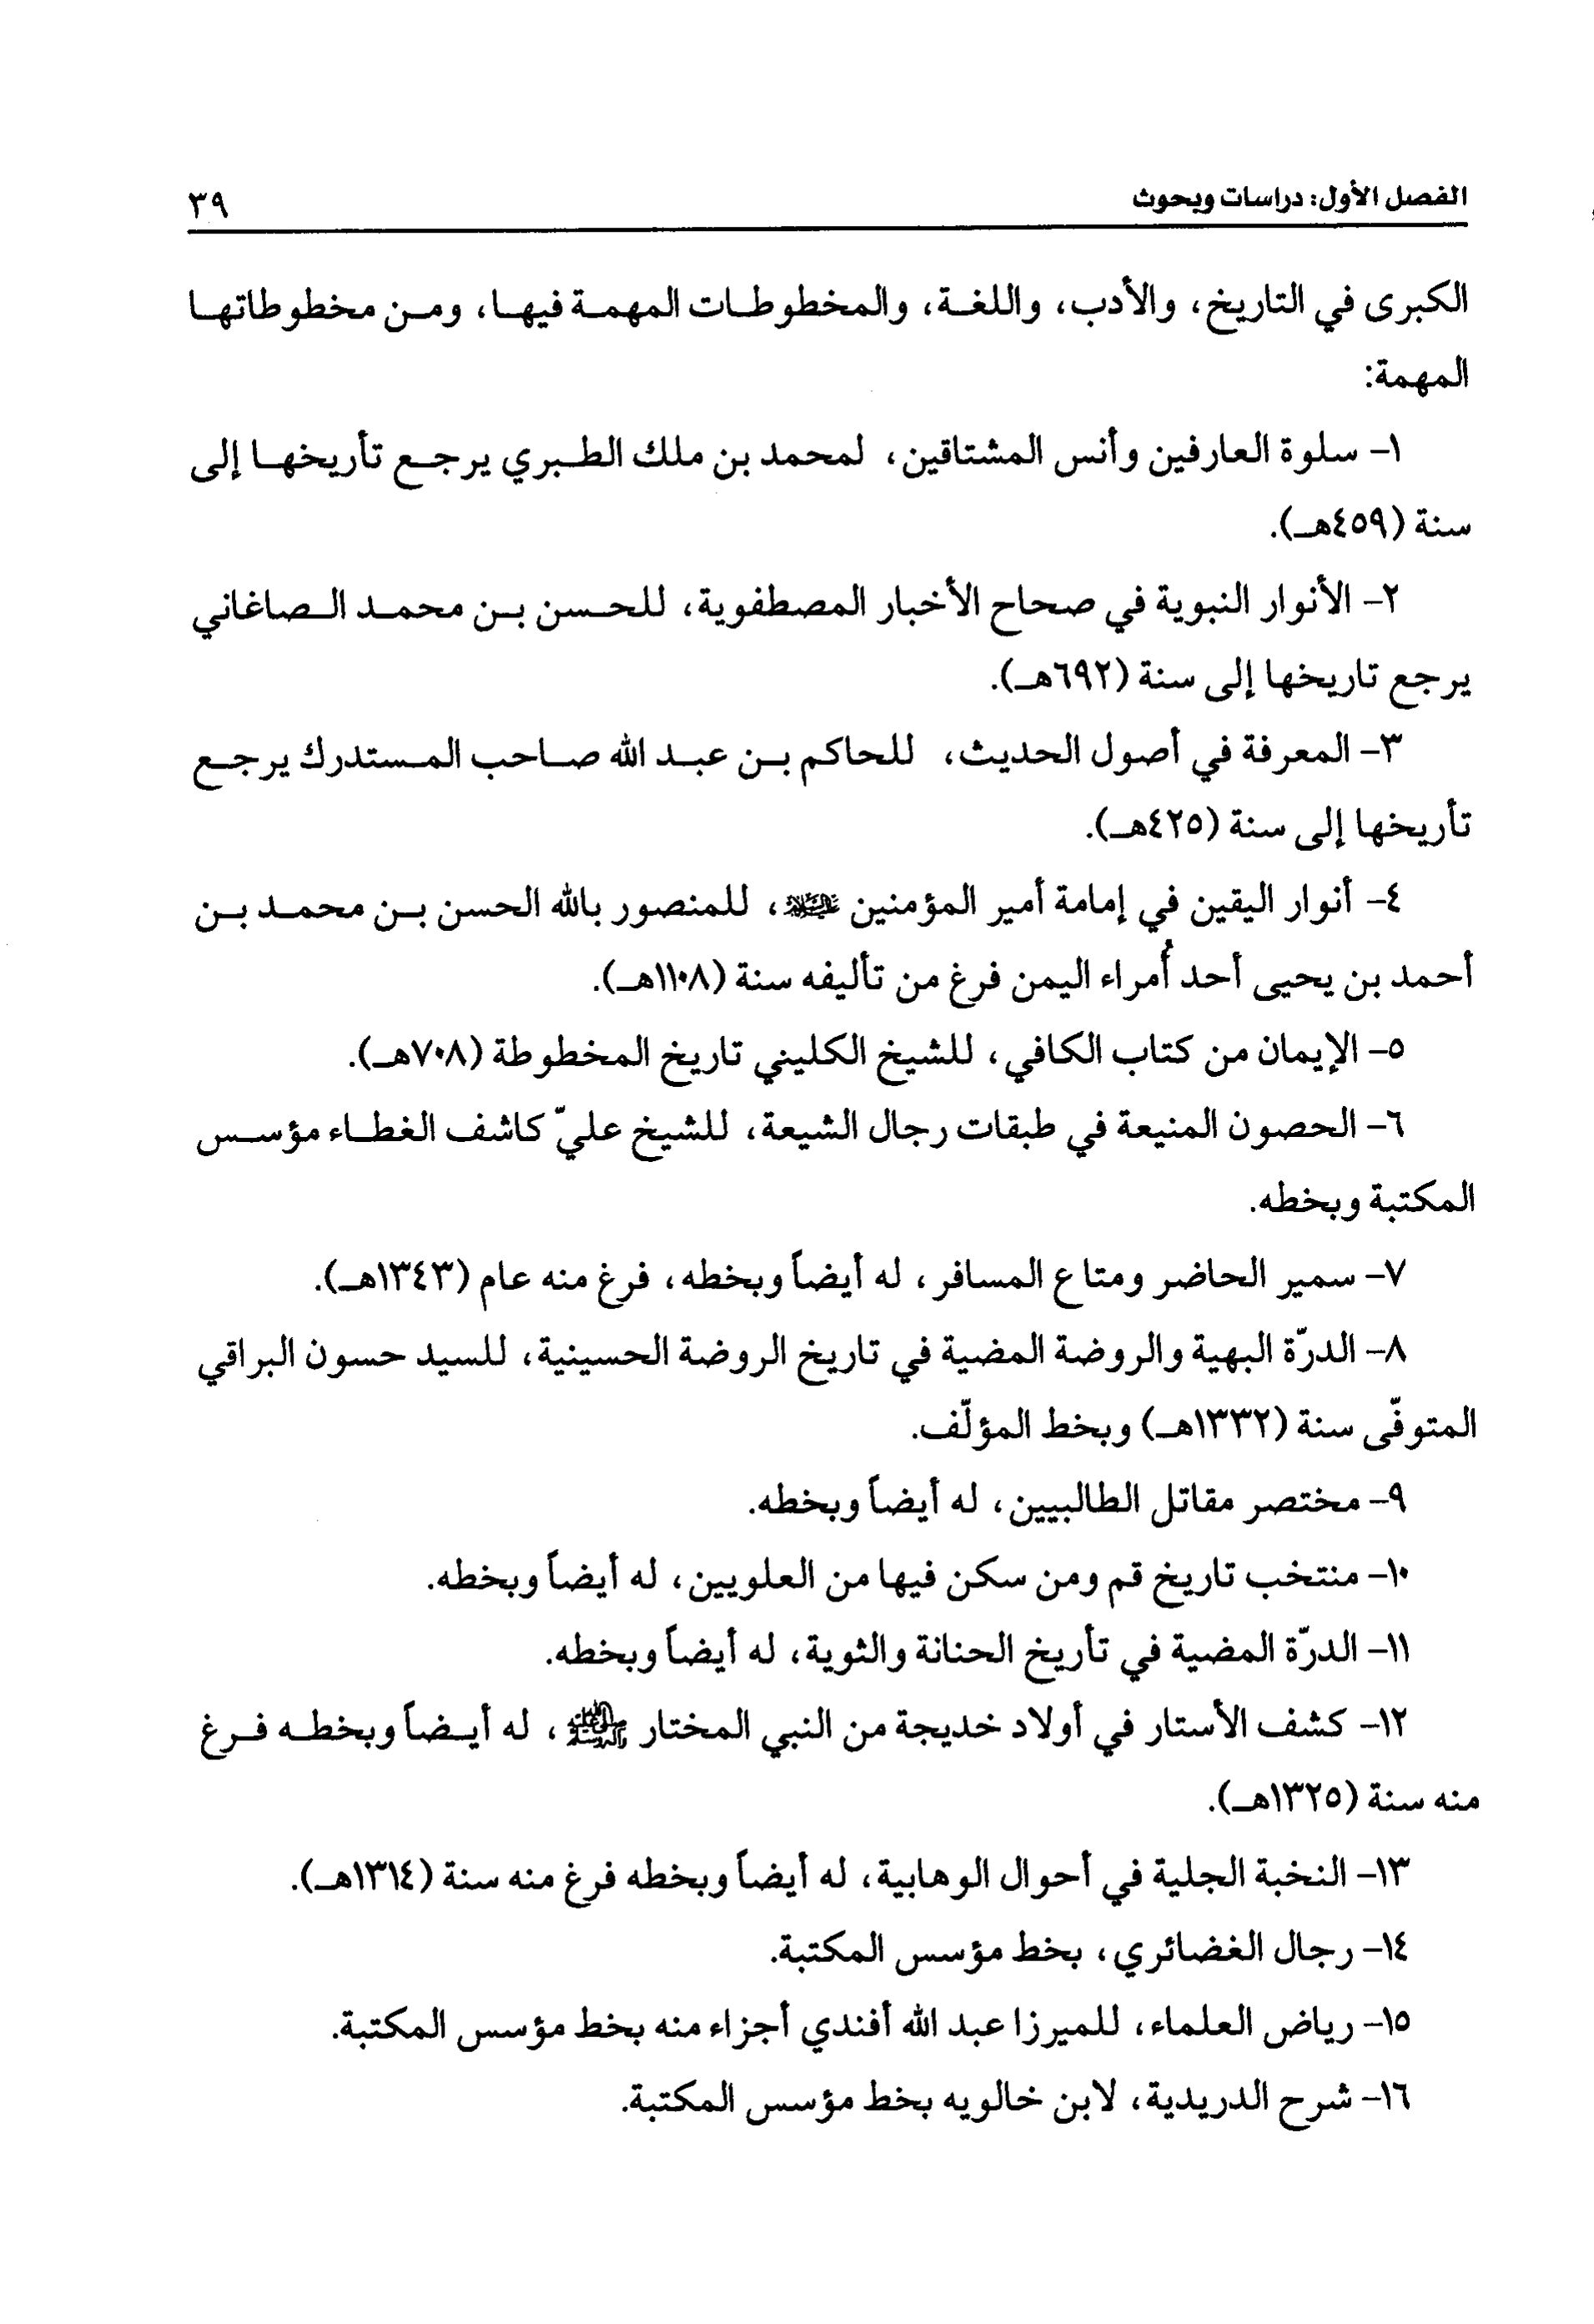 الفصل الأول: دراسات وبحوث ٣٩
الكبرى في التاريخ، والأدب، واللغة، والمخطوطات المهمة فيها، ومن مخطوطاتها
المهمة:
١- سلوة العارفين وأنس المشتاقين، لمحمد بن ملك الطبري يرجع تأريخها إلى
سنة (٤٥٩هـ).
٢- الأنوار النبوية في صحاح الأخبار المصطفوية، للحسن بن محمد الصاغاني
يرجع تاريخها إلى سنة (٦٩٢هـ).
٣- المعرفة في أصول الحديث، للحاكم بن عبد الله صاحب المستدرك يرجع
تأريخها إلى سنة (٤٢٥هـ).
٤- أنوار اليقين في إمامة أمير المؤمنين عليه السلام، للمنصور بالله الحسن بن محمد بن
أحمد بن يحيى أحد أُمراء اليمن فرغ من تأليفه سنة (١١٠٨هـ).
٥- الإيمان من كتاب الكافي، للشيخ الكليني تاريخ المخطوطة (٧٠٨هـ).
٦- الحصون المنيعة في طبقات رجال الشيعة، للشيخ عليّ كاشف الغطاء مؤسس
المكتبة وبخطه.
٧- سمير الحاضر ومتاع المسافر، له أيضاً وبخطه، فرغ منه عام (١٣٤٣هـ).
٨- الدرّة البهية والروضة المضية في تاريخ الروضة الحسينية، للسيد حسون البراقي
المتوفّى سنة (١٣٣٢هـ) وبخط المؤلّف.
٩- مختصر مقاتل الطالبيين، له أيضاً وبخطه.
١٠- منتخب تاريخ قم ومن سكن فيها من العلويين، له أيضاً وبخطه.
١١- الدرّة المضية في تأريخ الحنانة والثوية، له أيضاً وبخطه.
١٢- كشف الأستار في أولاد خديجة من النبي المختار صلى الله عليه وآله وسلم، له أيضاً وبخطه فرغ
منه سنة (١٣٢٥هـ).
١٣- النخبة الجلية في أحوال الوهابية، له أيضاً وبخطه فرغ منه سنة (١٣١٤هـ).
١٤- رجال الغضائري، بخط مؤسس المكتبة.
١٥- رياض العلماء، للميرزا عبد الله أفندي أجزاء منه بخط مؤسس المكتبة.
١٦- شرح الدريدية، لابن خالويه بخط مؤسس المكتبة.